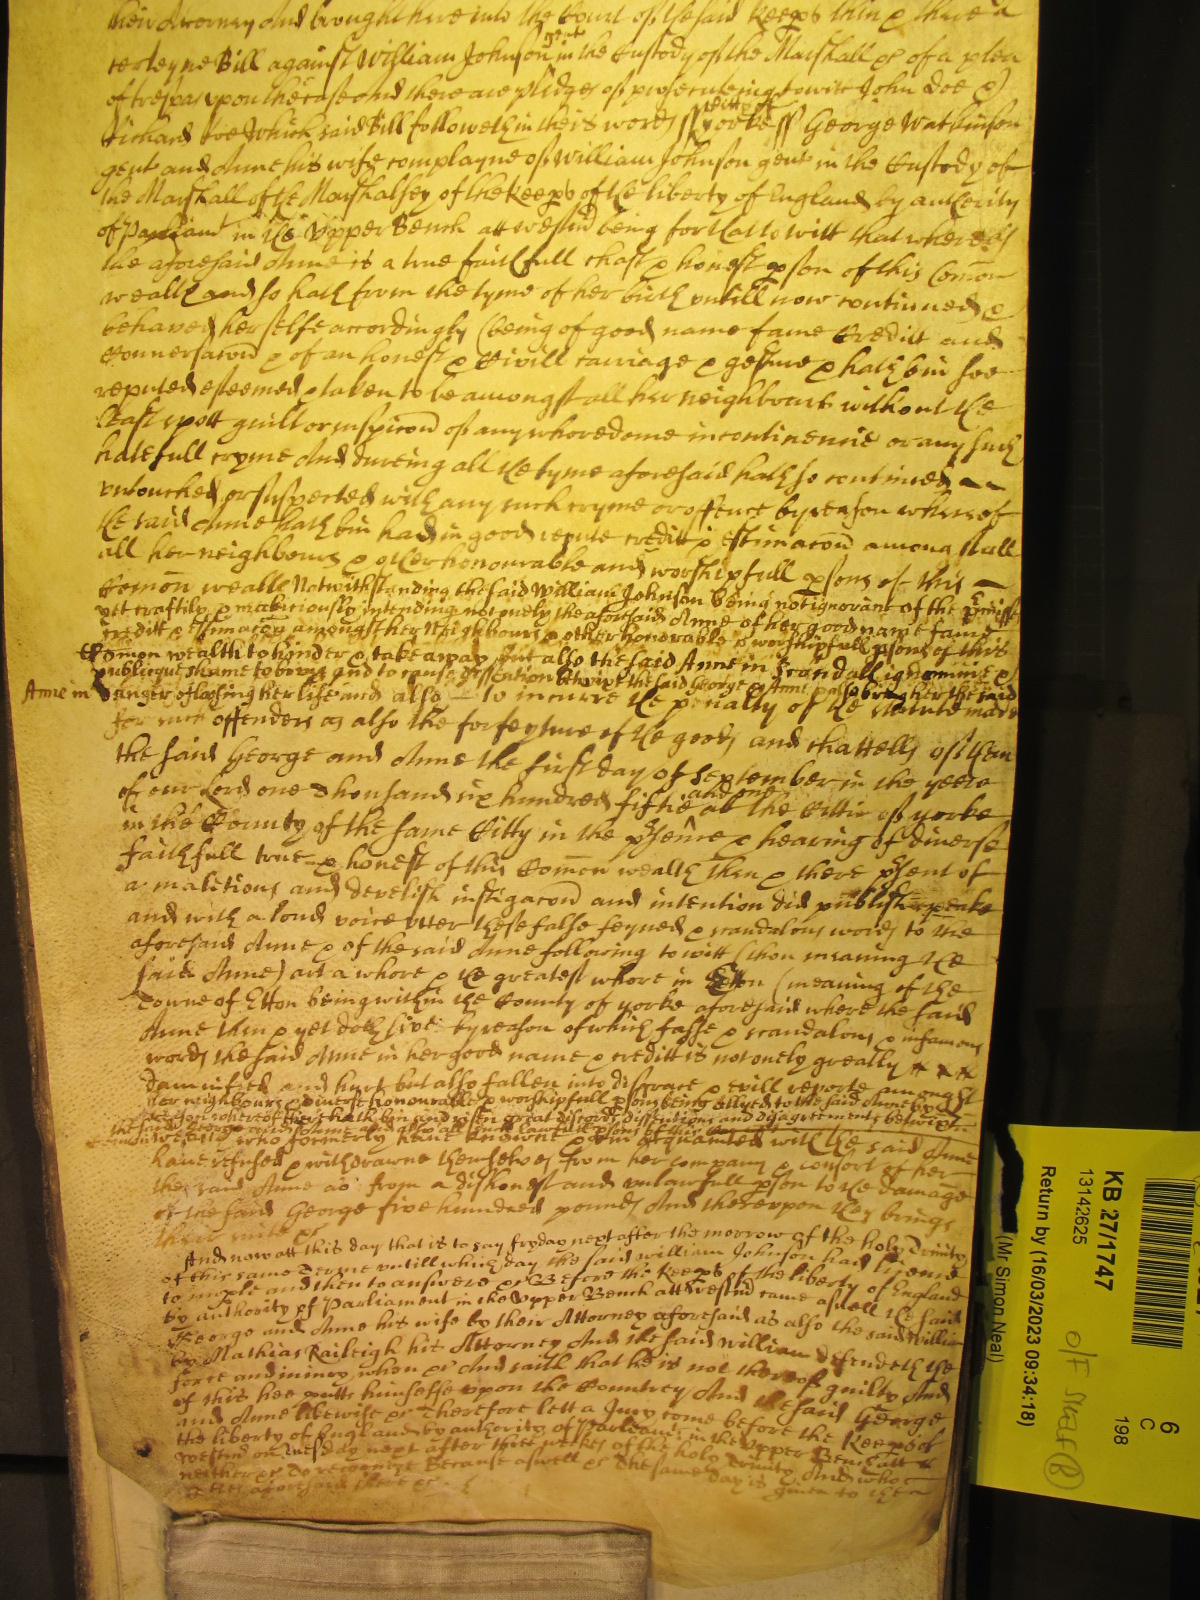 their Attorney And brought here into the Court of the said Keeps then & there a
certeyne Bill against William Johnson gent in the Custody of the Marshall &c of a plea
of trespas upon the case And there are pledges of prosecuteing to witt John Doe &
Richard Roe Which said Bill followeth in theis words ss Citty of Yorke ss George Watkinson
gent and Anne his wife complayne of William Johnson gent in the Custody of
the Marshall of the Marshalsey of the Keeps of the liberty of England by authority
of Parliamt in the Upper Bench att Westm being for that to witt that whereas
the aforesaid Anne is a true faithfull chast & honest pson of this Comon
wealth and so hath from the tyme of her birth untill now continued &
behaved her selfe accordingly (being of good name fame Creditt and
Conversacon & of an honest & Civill carriage & gesture & hath bin soe
reputed esteemed & taken to be amongst all her neighbours without the
least spott guilt or suspicon of any whoredome incontinencie or any such
hatefull cryme And dureing all the tyme aforesaid hath so continued
untouched or suspected with any such cryme or offence by reason whereof
the said Anne hath bin had in good repute creditt & estimacon among all
all her neighbours & other honourable and worshipfull psons of this
Comon wealth Notwithstanding the said William Johnson being not ignorant of the pmisses
yet craftily & maliciously intending not onely the aforesaid Anne of her good name fame
creditt & estimacon amongst her Neighbours & other honorable & worshipfull psons of this
Comon wealth to hinder & take away but also the said Anne in Scandall ignominie &
publicque shame to bring and to cause dissention betwixt the said George & Anne & also bring her the said
Anne in danger of loosing her life and also to incurre the penalty of the statute made
for such offenders as also the forfeyture of the goods and chattells of them
the said George and Anne the first day of September in the yeere
of our Lord one thousand six hundred fiftie and one at the Cittie of yorke
in the County of the same Citty in the psence & hearing of diverse
faithfull true & honest of this Comon wealth then & there psent of
a malitious and develish instigacon and intention did publish speake
and with a loud voice utter these false feyned & scandalous words to the
aforesaid Anne & of the said Anne following to witt (thou meaning the
said Anne) art a whore & the greatest whore in Etton (meaning of the
Towne of Etton being within the County of yorke aforesaid where the said
Anne then & yet doth live) by reason of which false & scandalous & infamous
words the said Anne in her good name & creditt is not onely greatly
damnified and hurt but also fallen into disgrace & evill reporte amongst
her neighbours & diverse honourable & worshipfull psons being allyed to the said Anne
whereof there hath bin and risen great discords dissentions and disagreements betwixt
the said George and Anne and also all such lawfull psons of this
Comon wealth who formerly have knowne & bin acquainted with the said Anne
have refused & withdrawne themselves from her company & consort of her
the said Anne as from a dishonest and unlawfull pson to the damage
of the said George five hundred pounds And thereupon they bringe
their suite &c
And now att this day that is to say fryday next after the morrow of the holy Trinity
of this same Terme untill which day the said William Johnson had licence
to imple and then to answere &c Before the Keeps of the liberty of England
by authority of Parliament in the Upper Bench att Westm came aswell the said
George and Anne his wife by their Attorney aforesaid as also the said William
by Mathias Raileigh his Attorney And the said William defendeth the
force and iniury when &c And saith that he is not thereof guilty And
of this hee putts himselfe upon the Countrey And the said George
and Anne likewise &c Therefore lett a Jury come before the Keeps of
the liberty of England by authority of Parliamt in the Upper Bench att
Westm on Tuesday next after three weekes of the holy Trinity And who
neither &c To recognize Because aswell &c The same day is given to the
pties aforesaid there &c
KB 27/1747
13142625
Return by (16/03/2023 09:34:18)
(Mr Simon Neal)
6
C
198
O/F Shelf (R)